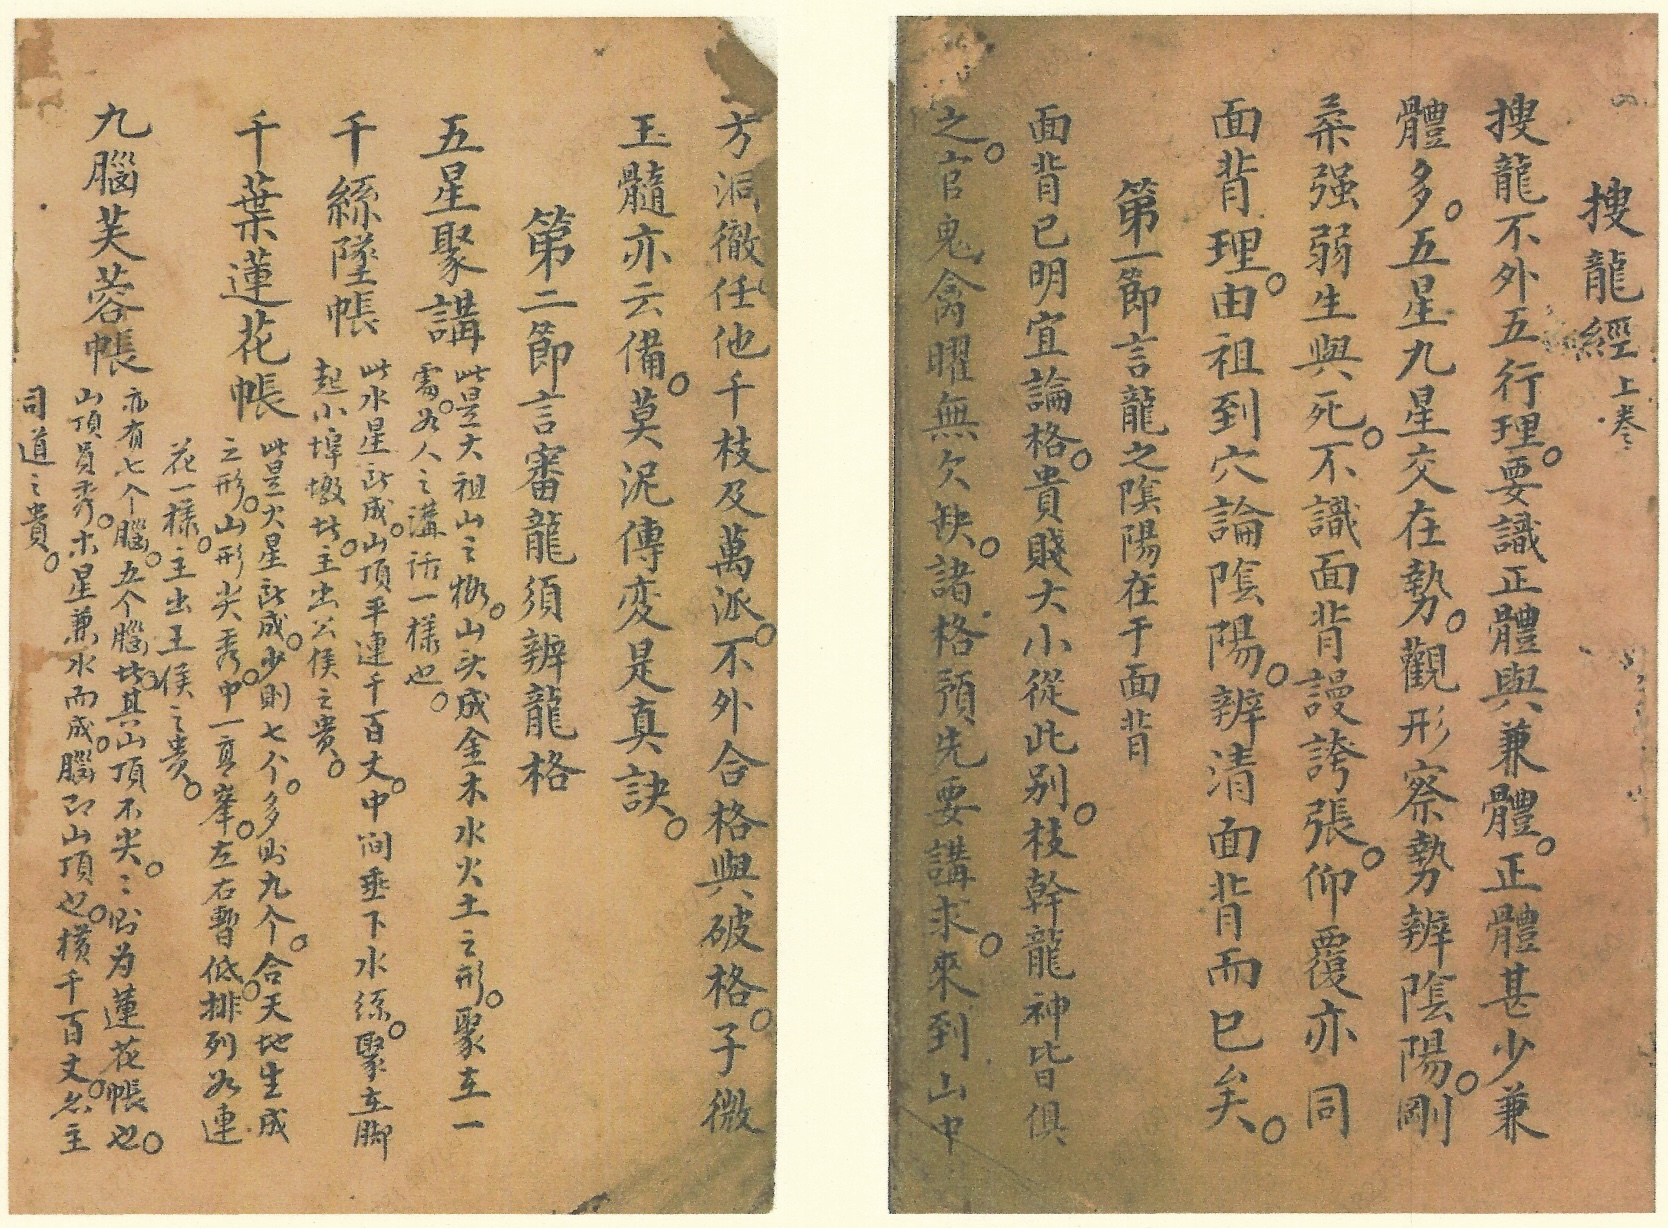 搜龍經上卷
搜龍不外五行理。要識正體與兼體。正體甚少兼
體多。五星九星交在勢。觀形察勢辨陰陽。剛
柔强弱生與死。不識面背謾誇張。仰覆亦同
面背理。由祖到穴論陰陽。辨清面背而已矣。
第一節言龍之陰陽在于面背
面背已明宜論格。貴賤大小從此別。枝幹龍神皆俱
之。官鬼禽曜無欠缺。諸格預先要講求。來到山中
方洞徹任他千枝及萬派。不外合格與破格。子微
玉髓亦云備。莫泥傳变是真訣。
第二節言審龍須辨龍格
五星聚講
此是大祖山之格。山头成金木水火土之形。聚在一
需。如人之講話一樣也。
千絲墜帳
此水星所成。山頂平連千百丈。中间垂下水絲。聚在脚
起小埠墩。此主出公侯之貴。
千葉蓮花帳
此是火星所成。少則七个。多則九个。合天地生成
之形。山形尖秀。中一高峯。左右暫低。排列如連
花一樣。主出王侯之貴。
九腦芙蓉帳
亦有七个腦。五个腦。此其山頂不尖。〻則为蓮花帳也。
山頂員秀。木星兼水而成。腦即山頂也。橫千百丈。亦主
司道之貴。